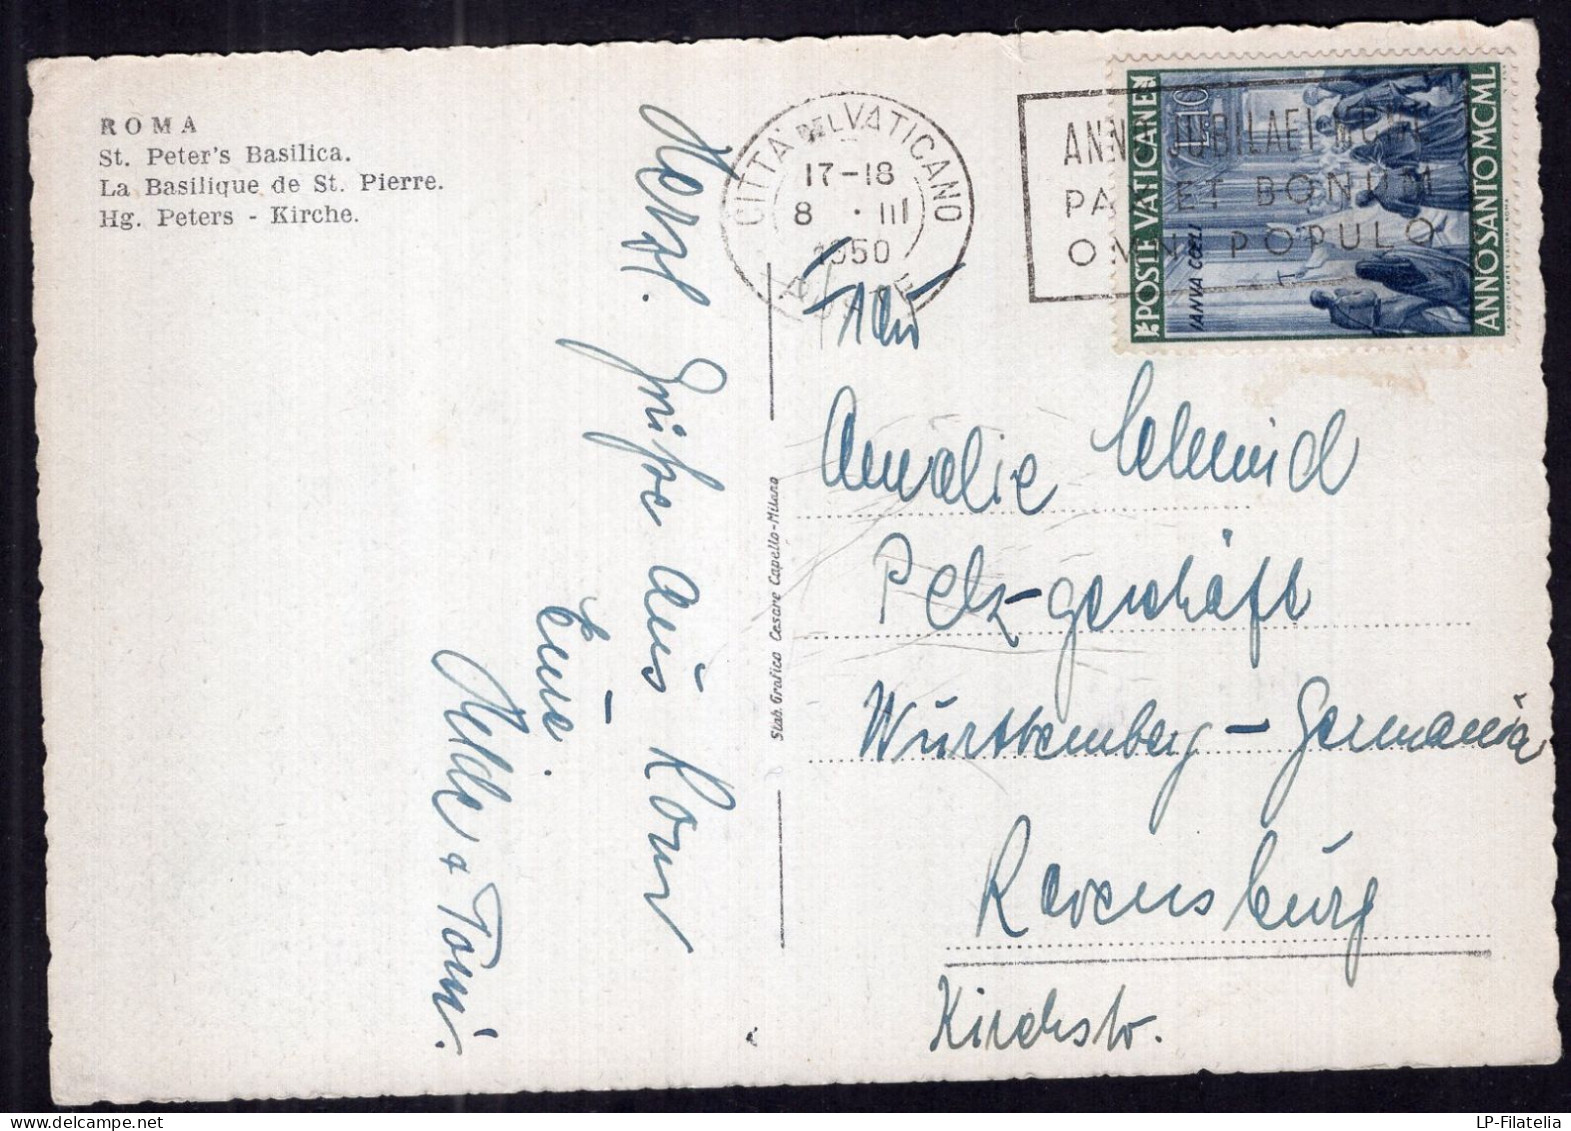 ROMA
St. Peter's Basilica.
La Basilique de St. Pierre.
Hg. Peters - Kirche.
CITTA' DEL VATICANO
17-18
8 · III
1950
POSTE
ANNO JUBILAEI MCML
PAX ET BONUM
OMNI POPULO
POSTE VATICANE
L.10
IANVA COELI
ANNO SANTO MCML
Herzl. Grüße aus Rom
Eure
Melde & Toni.
Stab. Grafico Cesare Capello-Milano
An
Amalie Schmid
Pelz-geschäft
Württemberg - Germania
Ravensburg
Kirchstr.
LP-Filatelia